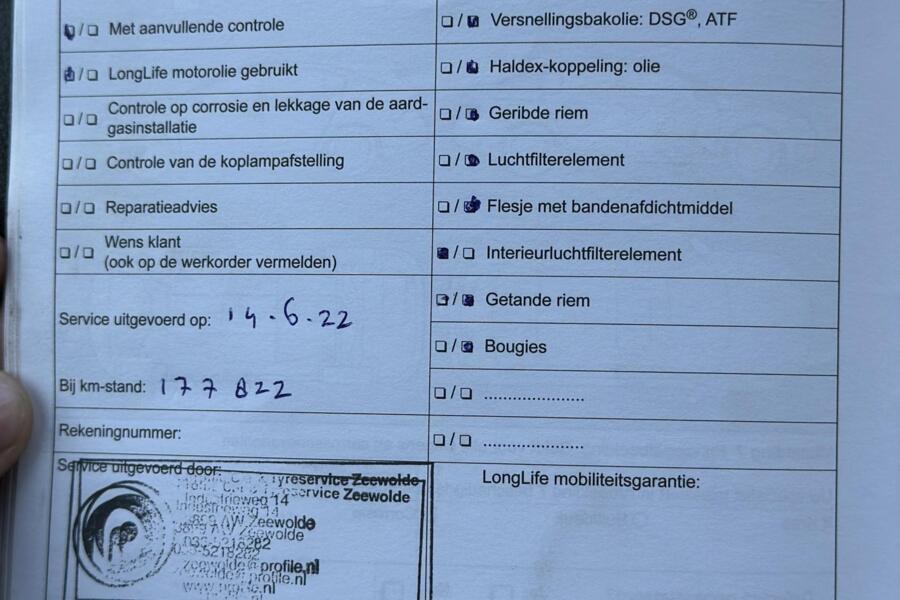 Met aanvullende controle
LongLife motorolie gebruikt
Controle op corrosie en lekkage van de aard-
gasinstallatie
Controle van de koplampafstelling
Reparatieadvies
Wens klant
(ook op de werkorder vermelden)
Service uitgevoerd op: 14.6.22
Bij km-stand: 177 822
Rekeningnummer:
Service uitgevoerd door:
Tyreservice Zeewolde
service Zeewolde
Industrieweg 14
Industrieweg 14
AW Zeewolde
Zeewolde
036-5218282
zeewolde@profile.nl
profile.nl
www.profile.nl
Versnellingsbakolie: DSG®, ATF
Haldex-koppeling: olie
Geribde riem
Luchtfilterelement
Flesje met bandenafdichtmiddel
Interieurluchtfilterelement
Getande riem
Bougies
....................
....................
LongLife mobiliteitsgarantie: